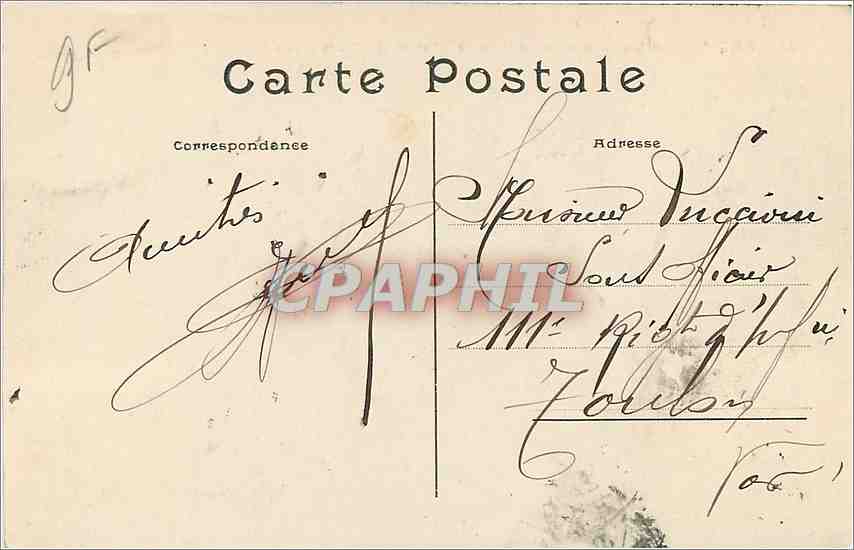 9F
Carte Postale
Correspondance
Adresse
Amitiés
Monsieur
Sous officier
111e Régt d'Infie
Toulon
Var
CPAPHIL